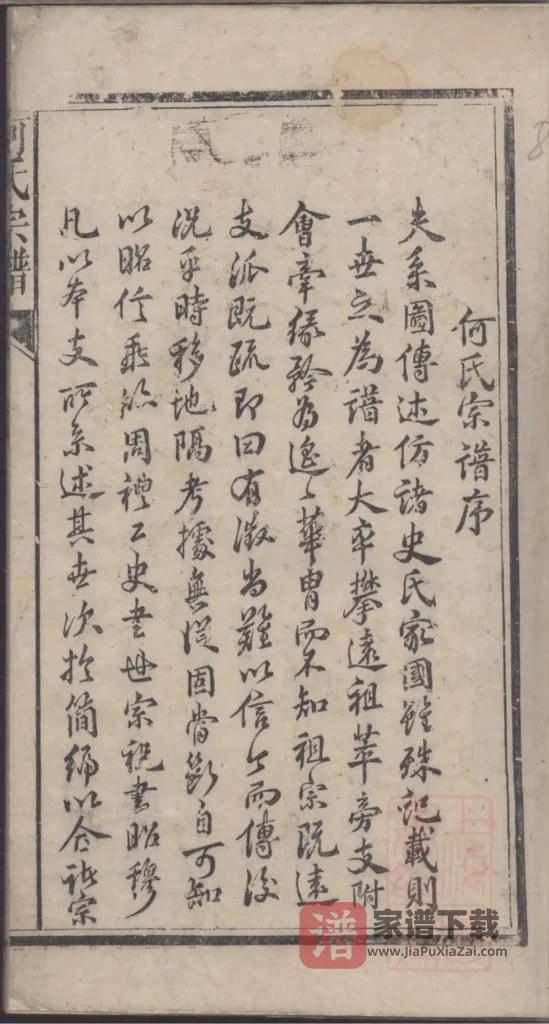 何氏宗譜序
夫系圖傳述仿諸史氏家國雖殊記載則
一世之為譜者大率攀遠祖萃旁支附
會牽缘矜為遙遙華冑而不知祖宗既遠
支派既疏即曰有徵尚難以信今而傳後
況乎時移地隔考據無從固當斷自可知
以昭信乘然周禮工史書世宗祝書昭穆
凡以本支所系述其世次於簡編以合諸宗
氏宗譜
8
譜 家谱下载
www.JiaPuXiaZai.com